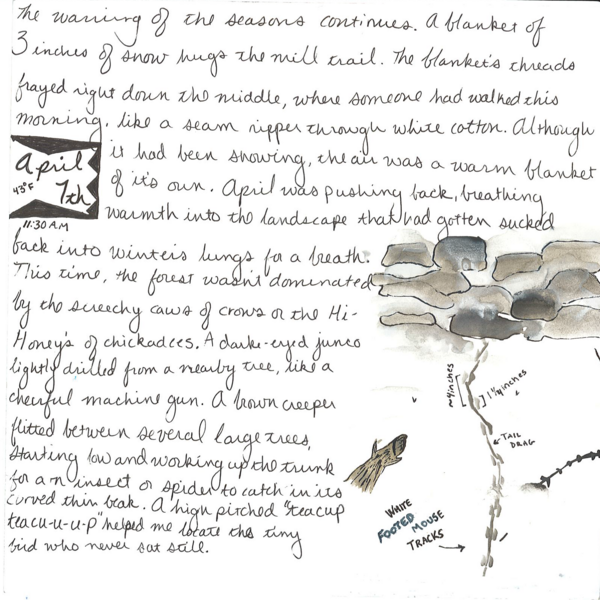 The warring of the seasons continues. A blanket of
3 inches of snow hugs the mill trail. The blanket's threads
frayed right down the middle, where someone had walked this
morning, like a seam ripper through white cotton. Although
April
7th
43°F
11:30 AM
it had been snowing, the air was a warm blanket
of it's own. April was pushing back, breathing
warmth into the landscape that had gotten sucked
back into winter's lungs for a breath.
This time, the forest wasn't dominated
by the screechy caws of crows or the Hi-
Honey's of chickadees. A dark-eyed junco
lightly drilled from a nearby tree, like a
cheerful machine gun. A brown creeper
flitted between several large trees,
starting low and working up the trunk
for an insect or spider to catch in its
curved thin beak. A high pitched "teacup
teacu-u-u-p" helped me locate the tiny
bird who never sat still.
~4 inches
1 1/4 inches
TAIL
DRAG
WHITE
FOOTED MOUSE
TRACKS